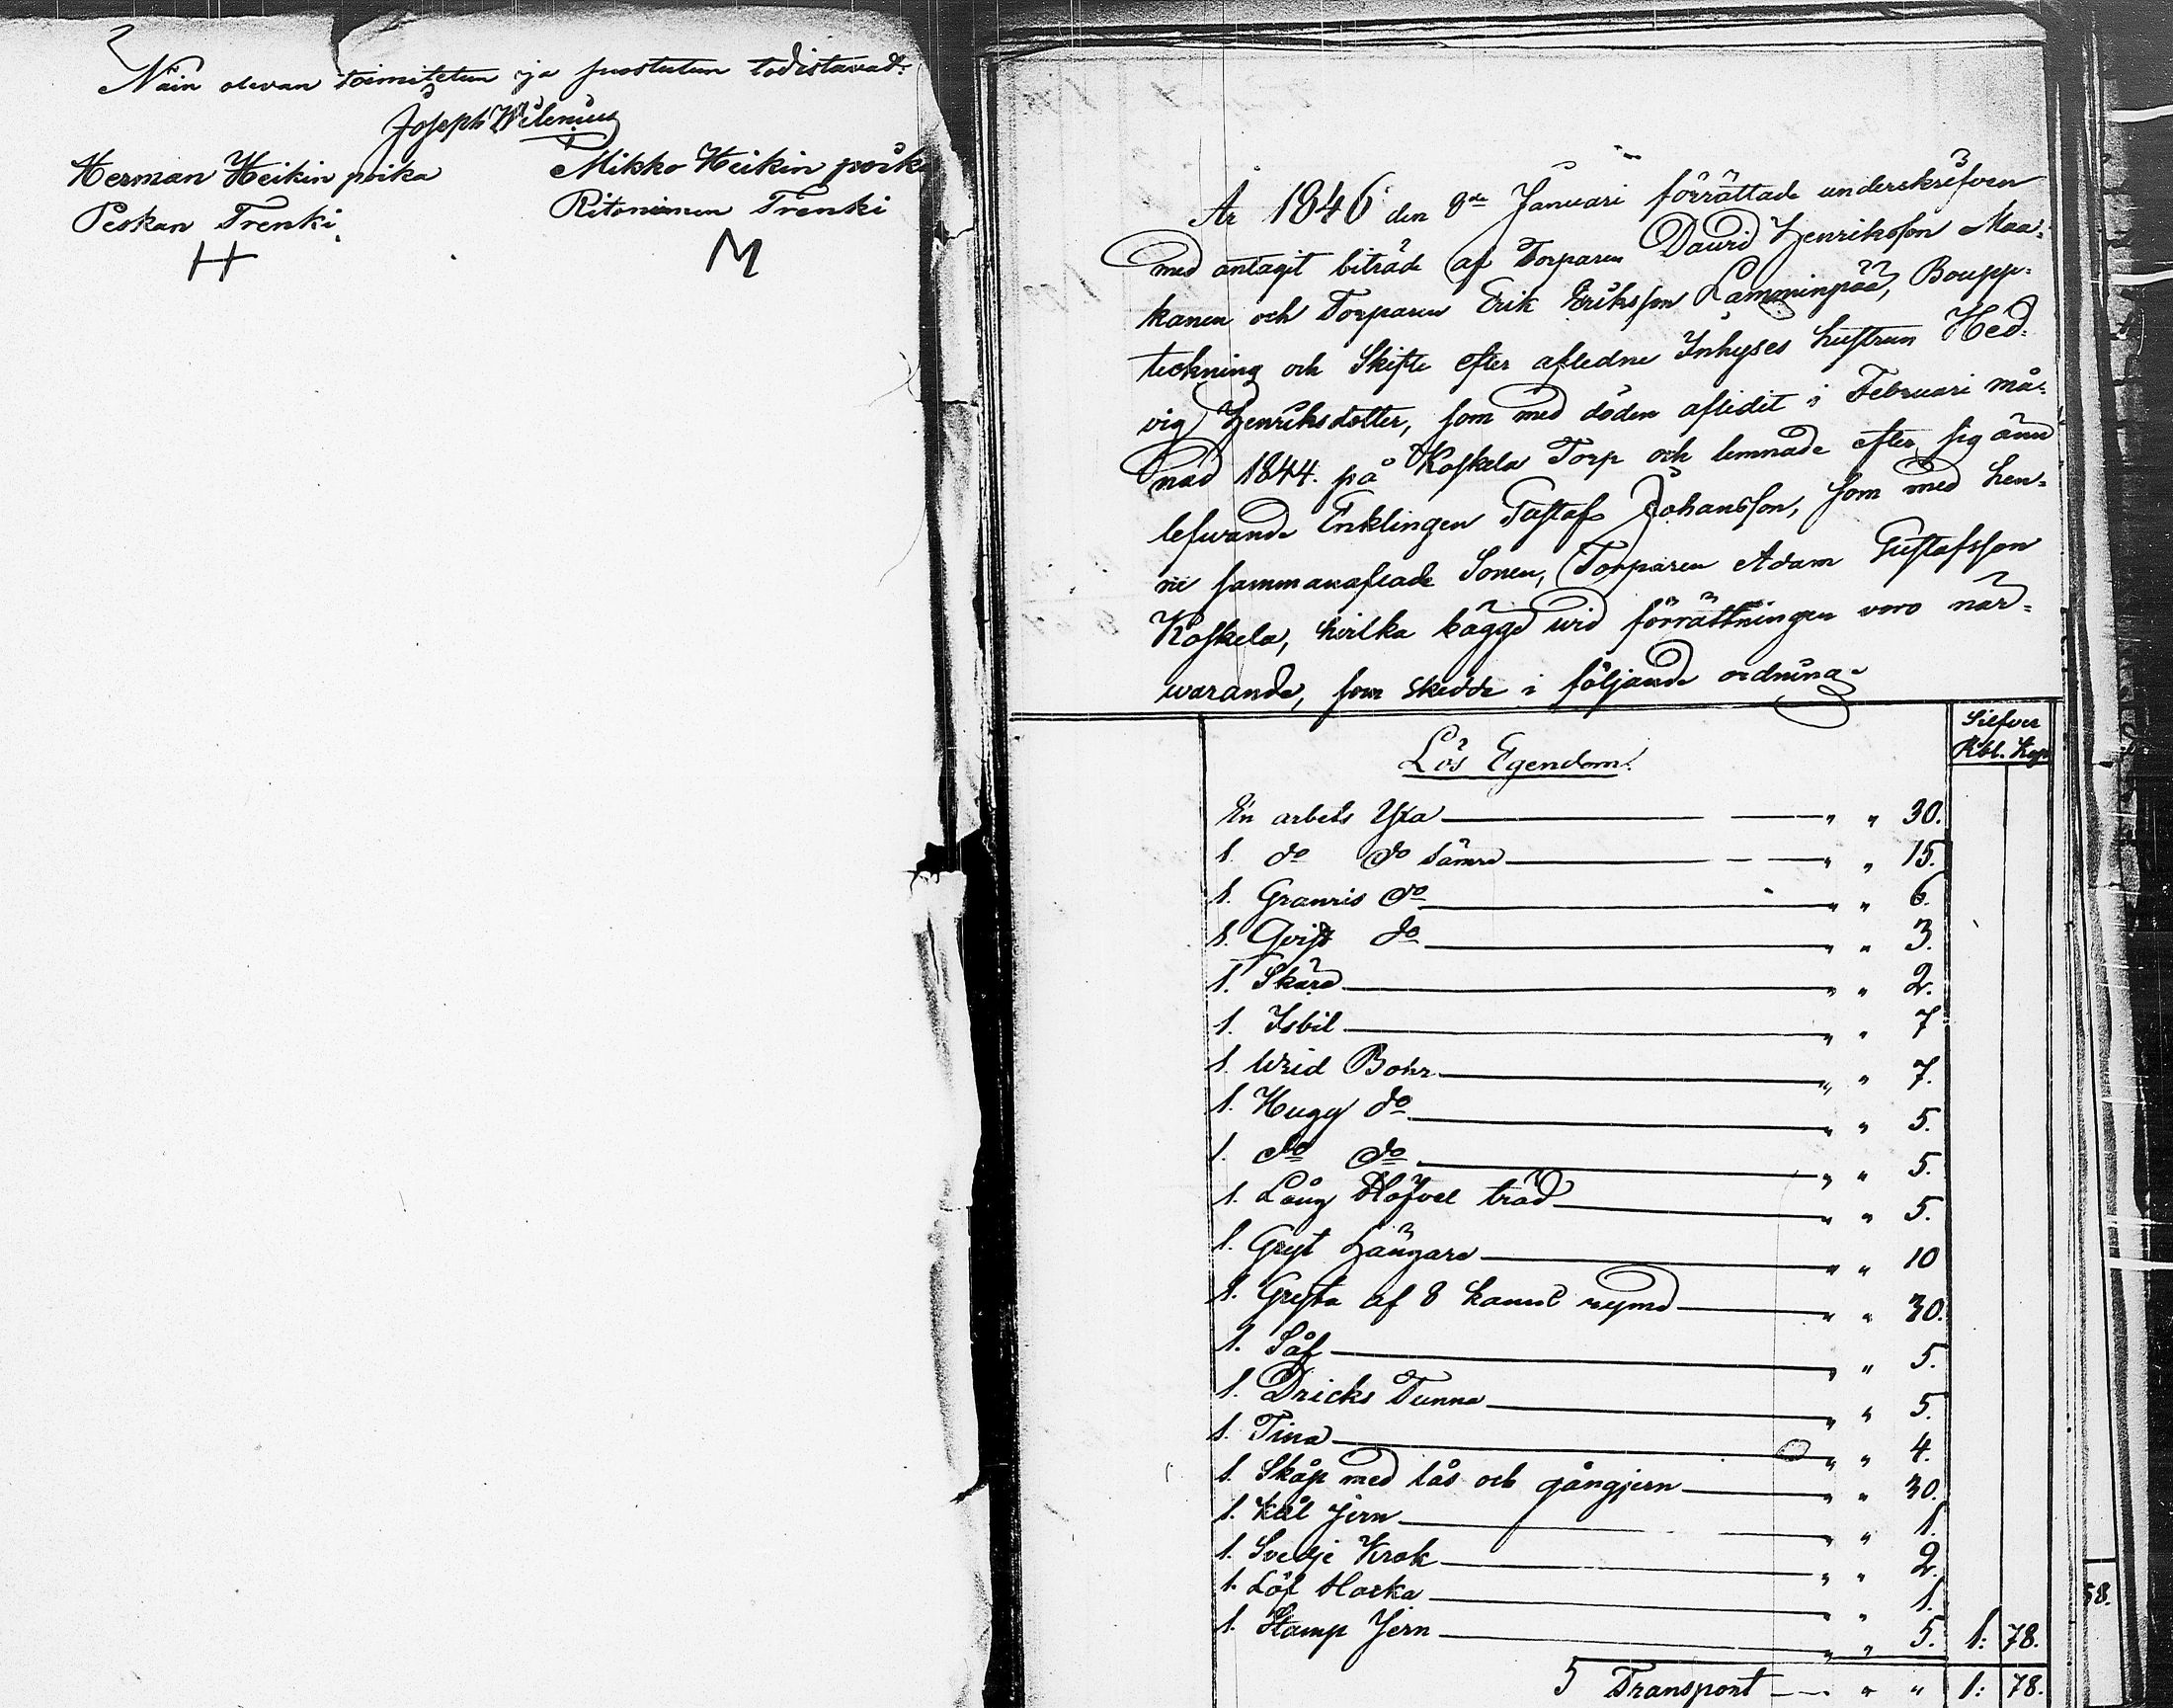 Näin olevan toimitetun ja puostutun todistavad:
Joseph Wilenius
Herman Heikin poika
Peskan Trenki.
H
Mikko Heikin poika
Ritoniemen Trenki
M
År 1846 den 8de Januari förrättade underskrefven
med antagit biträde af Torparen David Henriksson Maa-
kanen och Torparen Erik Eriksson Lamminpää, Boupp-
teckning och Skifte efter afledne Inhyses hustrun Hed-
vig Henriksdotter, som med döden afledit i Februari må-
nad 1844. på Koskela Torp och lemnade efter sig ännu
lefvande Enklingen Gustaf Johansson, som med hen-
ne sammanaflade Sonen, Torparen Adam Gustafsson
Koskela, hvilka bägge wid förrättningen voro när-
warande, som skedde i följande ordning.
Silfver
Rbl. Kop
Lös Egendom.
En arbets Yxa " " 30.
1. do do sämre " " 15.
1. Granris do " " 6.
1. Qvist do " " 3.
1. Skära " " 2.
1. Isbil " " 7
1. Wrid Bohr " " 7.
1. Hugg do " " 5.
1. do do " " 5.
1. Lång Höfvel träd " " 5.
1. Gryt Hängare " " 10
1. Gryta af 8 kannors rymd " " 30.
1. Såf " " 5.
1. Dricks Tunna " " 5.
1. Tina " " 4.
1. Skåp med lås och gångjern " " 30.
1. Kål Jern " " 1.
1. Svedje Krok " " 2.
1. Löf Harka " " 1.
1. Stamp Jern " " 5. 1: 78.
5 Transport " " 1: 78.
58.